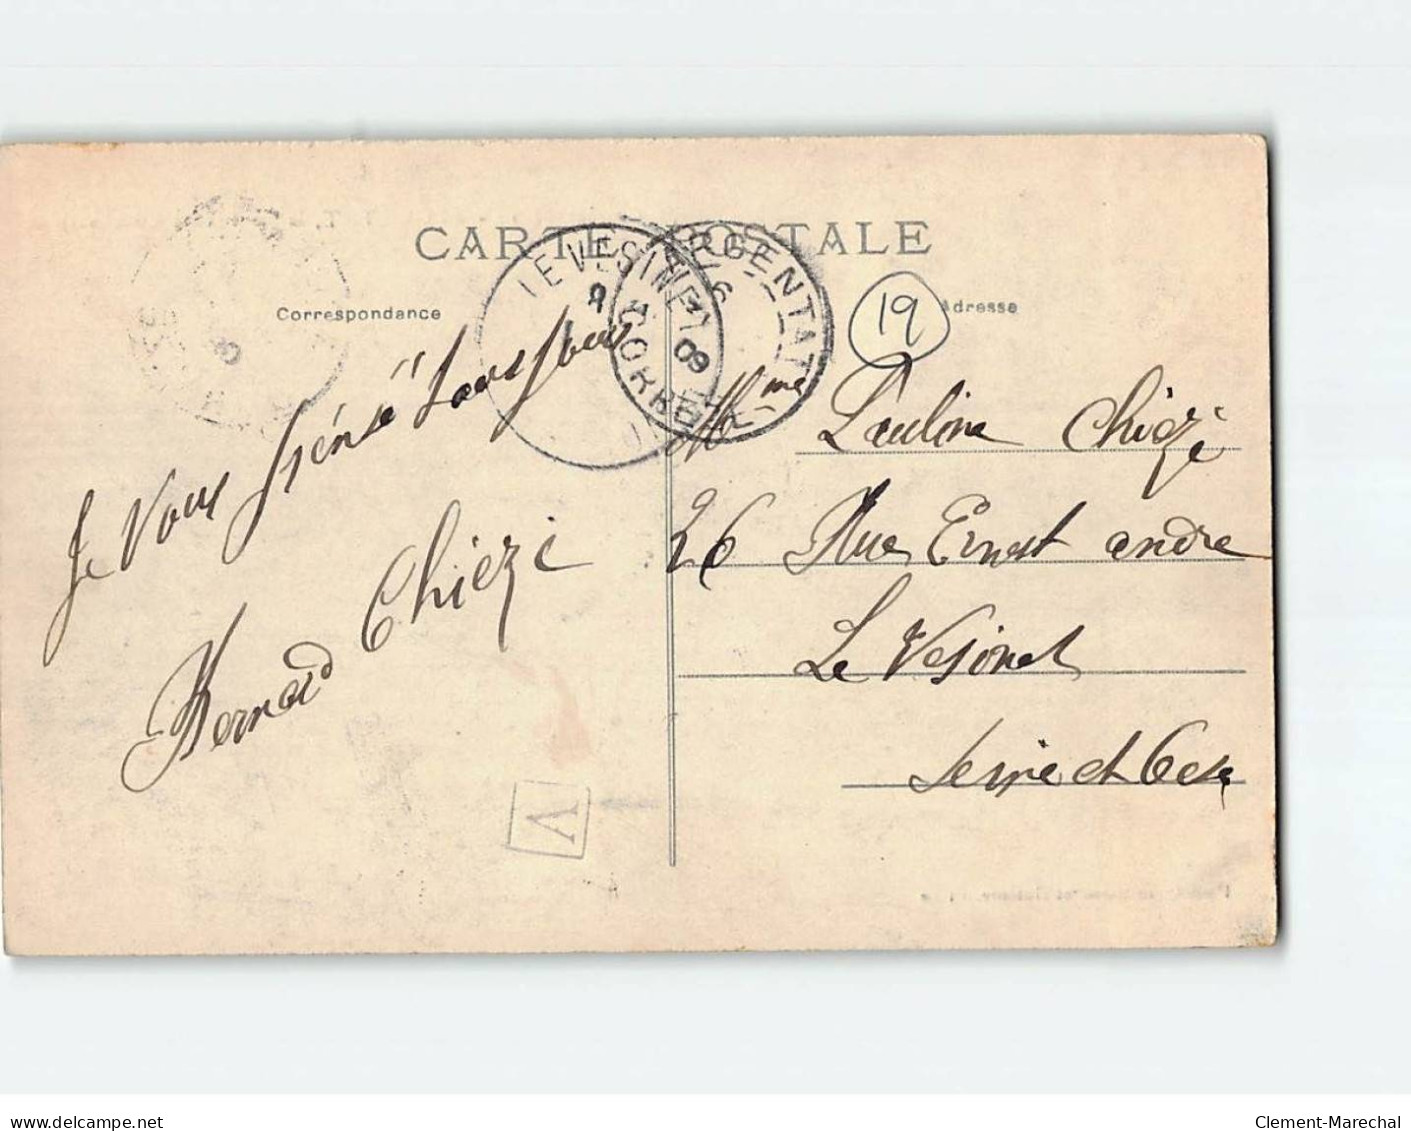 CARTE POSTALE
Correspondance
Adresse
19
LE VESINET
ARGENTAT
CORRÈZE
09
Je Vous
tous
Bernard Chièze
Mme Pauline Chièze
26 Rue Ernest andre
Le Vésinet
Seine et Oise
V
www.delcampe.net
Clement-Marechal